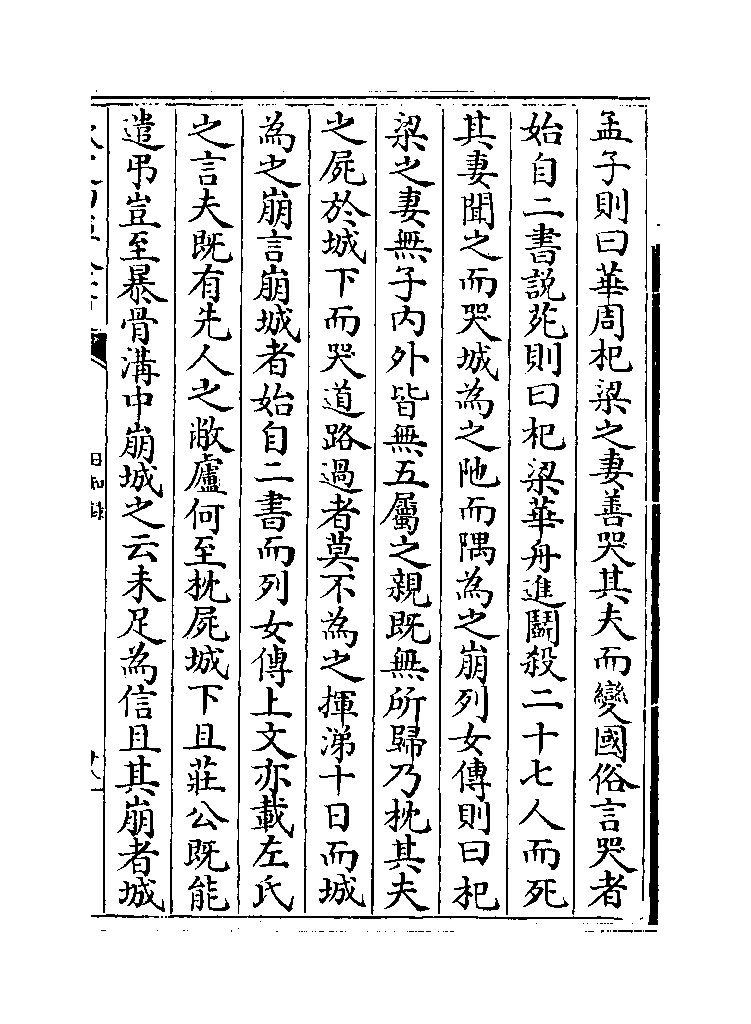 孟子則曰華周杞梁之妻善哭其夫而變國俗言哭者
始自二書說苑則曰杞梁華舟進鬬殺二十七人而死
其妻聞之而哭城為之阤而隅為之崩列女傳則曰杞
梁之妻無子内外皆無五屬之親既無所歸乃枕其夫
之屍於城下而哭道路過者莫不為之揮涕十日而城
為之崩言崩城者始自二書而列女傳上文亦載左氏
之言夫既有先人之敝廬何至枕屍城下且莊公既能
遣弔豈至暴骨溝中崩城之云未足為信且其崩者城
日知録